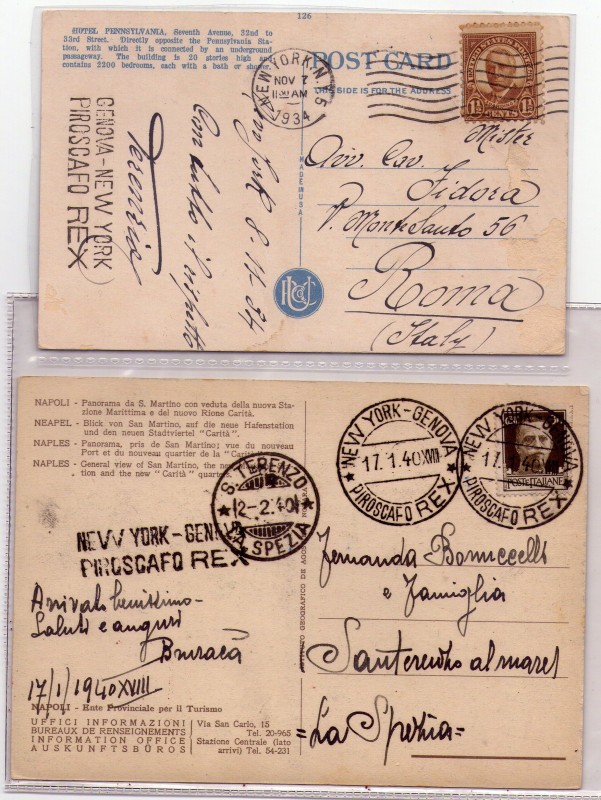 126
HOTEL PENNSYLVANIA, Seventh Avenue, 32nd to
33rd Street. Directly opposite the Pennsylvania Sta-
tion, with which it is connected by an underground
passageway. The building is 20 stories high and
contains 2200 bedrooms, each with a bath or shower.
POST CARD
THIS SIDE IS FOR THE ADDRESS
NEW YORK, N.Y.
NOV 7
11 30 AM
1934
UNITED STATES POSTAGE
1½ CENTS 1½
MADE IN U.S.A.
GENOVA-NEW YORK
PIROSCAFO REX
New York 8-11-34
Con tutto il rispetto
Mister
Avv. Cav.
Fidora
V. Monte Santo 56
Roma
(Italy)
NAPOLI - Panorama da S. Martino con veduta della nuova Sta-
zione Marittima e del nuovo Rione Carità.
NEAPEL - Blick von San Martino, auf die neue Hafenstation
und den neuen Stadtviertel "Carità".
NAPLES - Panorama, pris de San Martino; vue du nouveau
Port et du nouveau quartier de la "Carità"
NAPLES - General view of San Martino, the new
tion and the new "Carità" quarter
NEW YORK-GENOVA
17.1.40 XVIII
PIROSCAFO REX
NEW YORK-GENOVA
17.1.40 XVIII
PIROSCAFO REX
POSTE ITALIANE
S. TERENZO
2-2.40
LA SPEZIA
NEW YORK-GENOVA
PIROSCAFO REX
ISTITUTO GEOGRAFICO DE AGOSTINI
Arrivati benissimo-
Saluti e auguri
17/1/1940 XVIII
Fernanda Bonuccelli
e Famiglia
Santerenzo al mare
=La Spezia=
NAPOLI - Ente Provinciale per il Turismo
UFFICI INFORMAZIONI
BUREAUX DE RENSEIGNEMENTS
INFORMATION OFFICE
AUSKUNFTSBÜROS
Via San Carlo, 15
Tel. 20-965
Stazione Centrale (lato
arrivi) Tel. 54-231